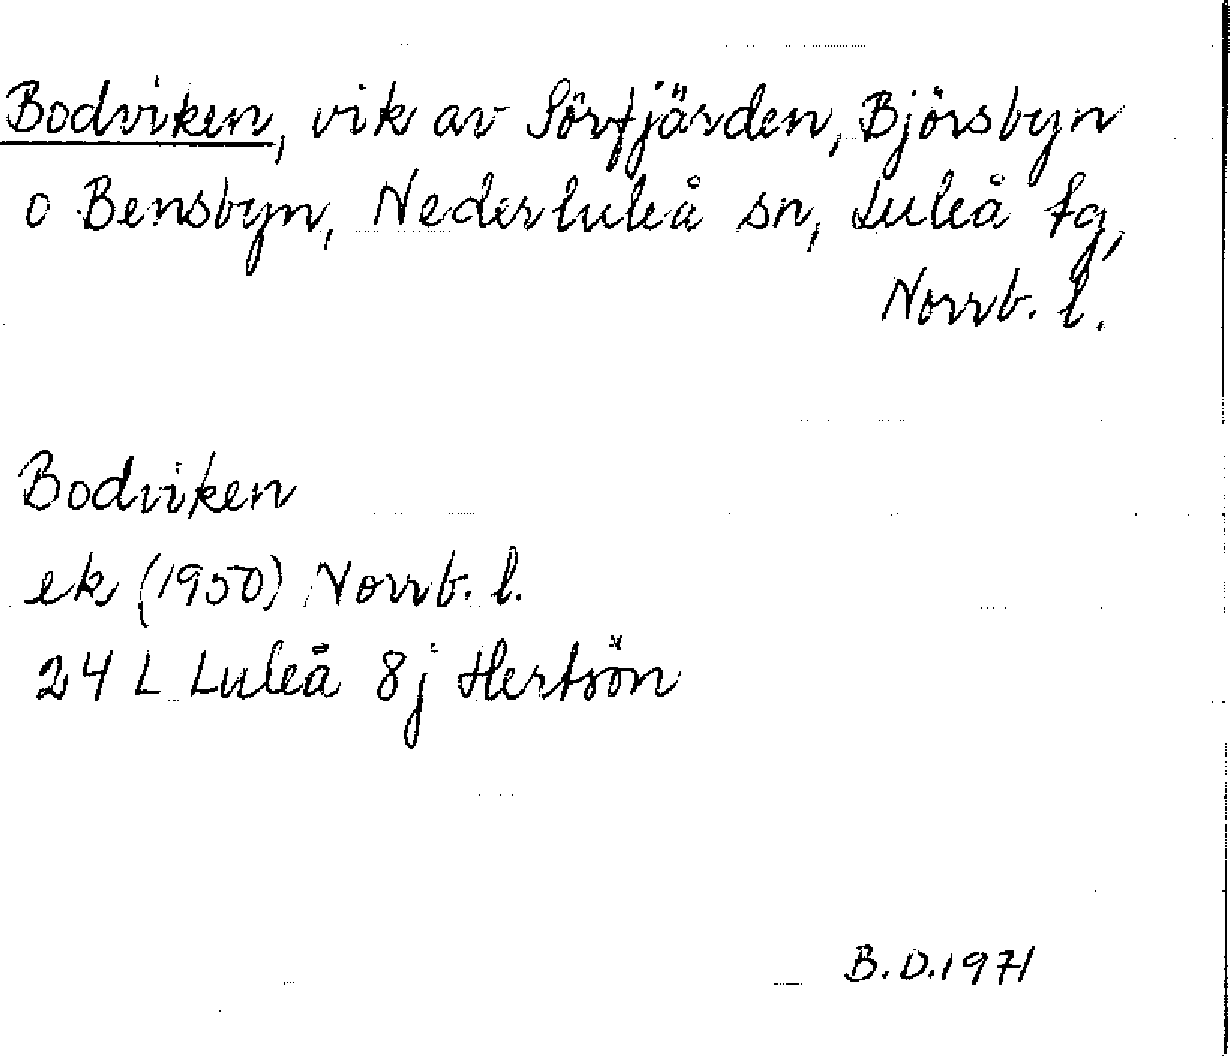 Bodviken, vik av Sörfjärden, Björsbyn
o Bensbyn, Nederluleå sn, Luleå tg,
Norrb. l.
Bodviken
ek (1950) Norrb. l.
24 L Luleå 8j Hertsön
B.D.1971